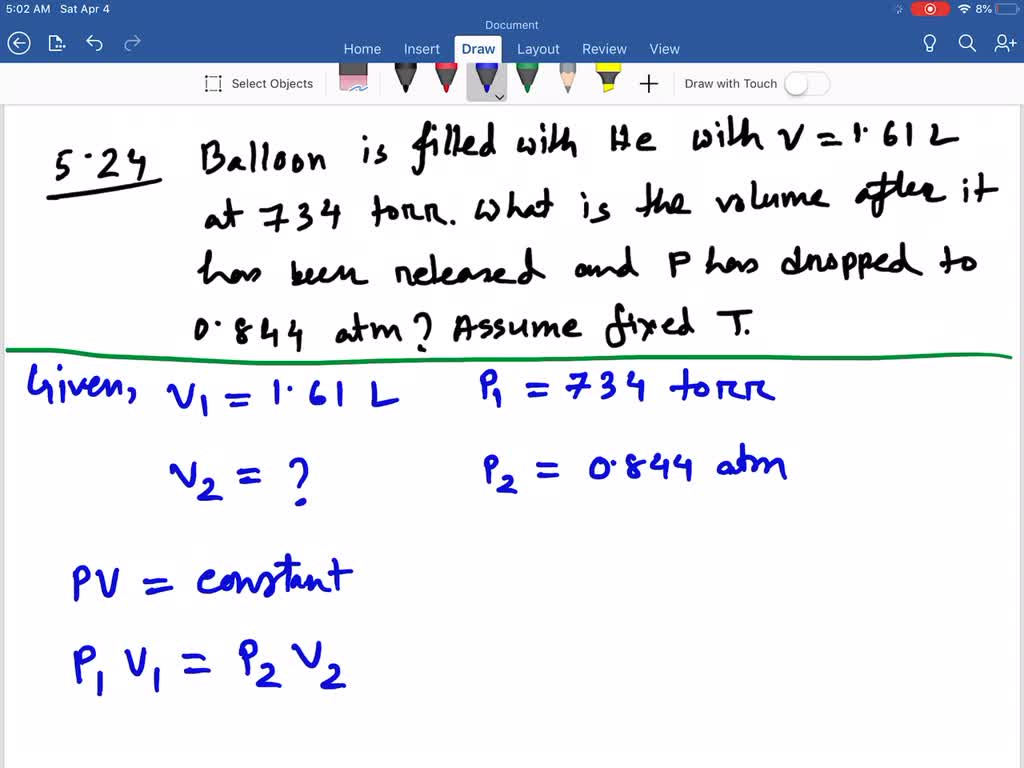 5:02 AM Sat Apr 4
8%
Document
Home Insert Draw Layout Review View
Select Objects
Draw with Touch
5.24 Balloon is filled with He with V = 1.61 L
at 734 torr. What is the volume after it
has been released and P has dropped to
0.844 atm? Assume fixed T.
Given, V1 = 1.61 L P1 = 734 torr
V2 = ? P2 = 0.844 atm
PV = constant
P1 V1 = P2 V2